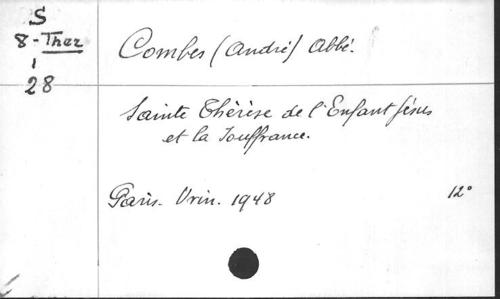 S
8-Ther
1
28
Combes (André) Abbé.
Sainte Thérèse de l'Enfant Jésus
et la Souffrance.
Paris. Vrin. 1948 12°